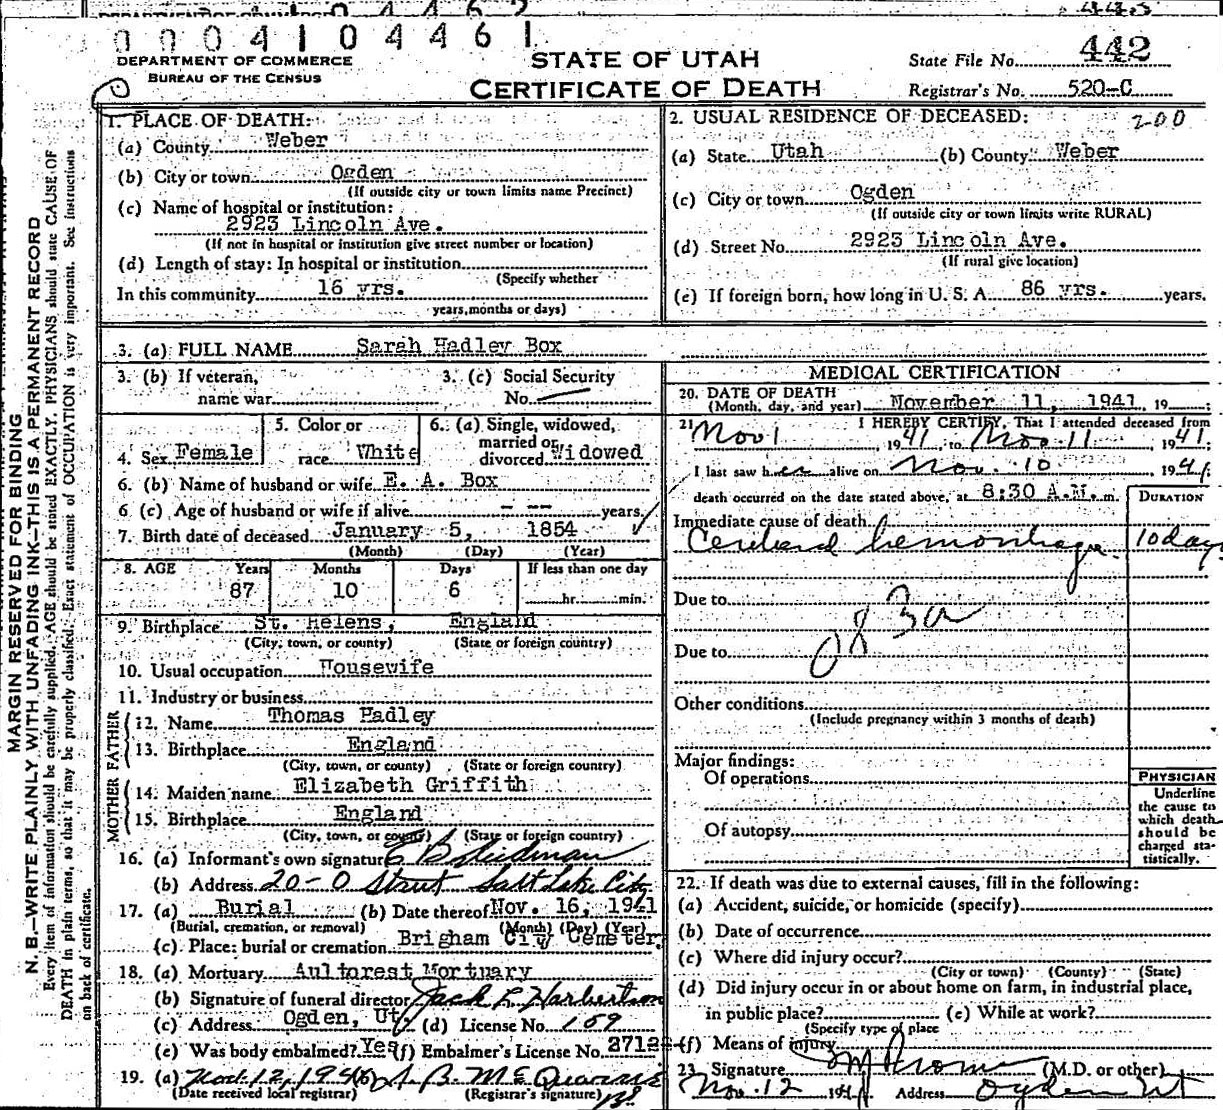 0004104461
DEPARTMENT OF COMMERCE
BUREAU OF THE CENSUS
STATE OF UTAH
CERTIFICATE OF DEATH
State File No. 442
Registrar's No. 520-C
MARGIN RESERVED FOR BINDING
N. B.—WRITE PLAINLY WITH UNFADING INK—THIS IS A PERMANENT RECORD
Every item of information should be carefully supplied. AGE should be stated EXACTLY. PHYSICIANS should state CAUSE OF
DEATH in plain terms, so that it may be properly classified. Exact statement of OCCUPATION is very important. See instructions
on back of certificate.
1. PLACE OF DEATH:
(a) County Weber
(b) City or town Ogden
(If outside city or town limits name Precinct)
(c) Name of hospital or institution:
2923 Lincoln Ave.
(If not in hospital or institution give street number or location)
(d) Length of stay: In hospital or institution
(Specify whether
In this community 16 yrs.
years, months or days)
2. USUAL RESIDENCE OF DECEASED: 200
(a) State Utah (b) County Weber
(c) City or town Ogden
(If outside city or town limits write RURAL)
(d) Street No. 2923 Lincoln Ave.
(If rural give location)
(e) If foreign born, how long in U. S. A. 86 yrs. years.
3. (a) FULL NAME Sarah Hadley Box
3. (b) If veteran, name war
3. (c) Social Security No.
4. Sex Female
5. Color or race White
6. (a) Single, widowed, married or divorced Widowed
6. (b) Name of husband or wife E. A. Box
6 (c) Age of husband or wife if alive - -- years.
7. Birth date of deceased January 5, 1854
(Month) (Day) (Year)
8. AGE Years Months Days If less than one day
87 10 6 hr. min.
9. Birthplace St. Helens, England
(City, town, or county) (State or foreign country)
10. Usual occupation Housewife
11. Industry or business
FATHER
12. Name Thomas Hadley
13. Birthplace England
(City, town, or county) (State or foreign country)
MOTHER
14. Maiden name Elizabeth Griffith
15. Birthplace England
(City, town, or county) (State or foreign country)
16. (a) Informant's own signature E B
(b) Address 20-O Street Salt Lake City
17. (a) Burial (b) Date thereof Nov. 16, 1941
(Burial, cremation, or removal) (Month) (Day) (Year)
(c) Place: burial or cremation Brigham City Cemeter
18. (a) Mortuary Aultorest Mortuary
(b) Signature of funeral director Jack L Harbertson
(c) Address Ogden, Ut. (d) License No. 159
(e) Was body embalmed? Yes (f) Embalmer's License No. 2712
19. (a) Nov. 12, 1941 (b)
(Date received local registrar) (Registrar's signature)
MEDICAL CERTIFICATION
20. DATE OF DEATH
(Month, day, and year) November 11, 1941, 19
21 I HEREBY CERTIFY, That I attended deceased from
Nov 1 1941, to Nov. 11 1941.
I last saw her alive on Nov. 10 1941.
death occurred on the date stated above, at 8:30 A.M. m.
DURATION
Immediate cause of death
Cerebral hemorrhage 10 days
Due to
Due to
Other conditions
(Include pregnancy within 3 months of death)
Major findings:
Of operations
Of autopsy
PHYSICIAN
Underline
the cause to
which death
should be
charged sta-
tistically.
22. If death was due to external causes, fill in the following:
(a) Accident, suicide, or homicide (specify)
(b) Date of occurrence
(c) Where did injury occur?
(City or town) (County) (State)
(d) Did injury occur in or about home on farm, in industrial place,
in public place? (e) While at work?
(Specify type of place
(f) Means of injury
23 Signature (M.D. or other)
Nov. 12 1941 Address Ogden Ut